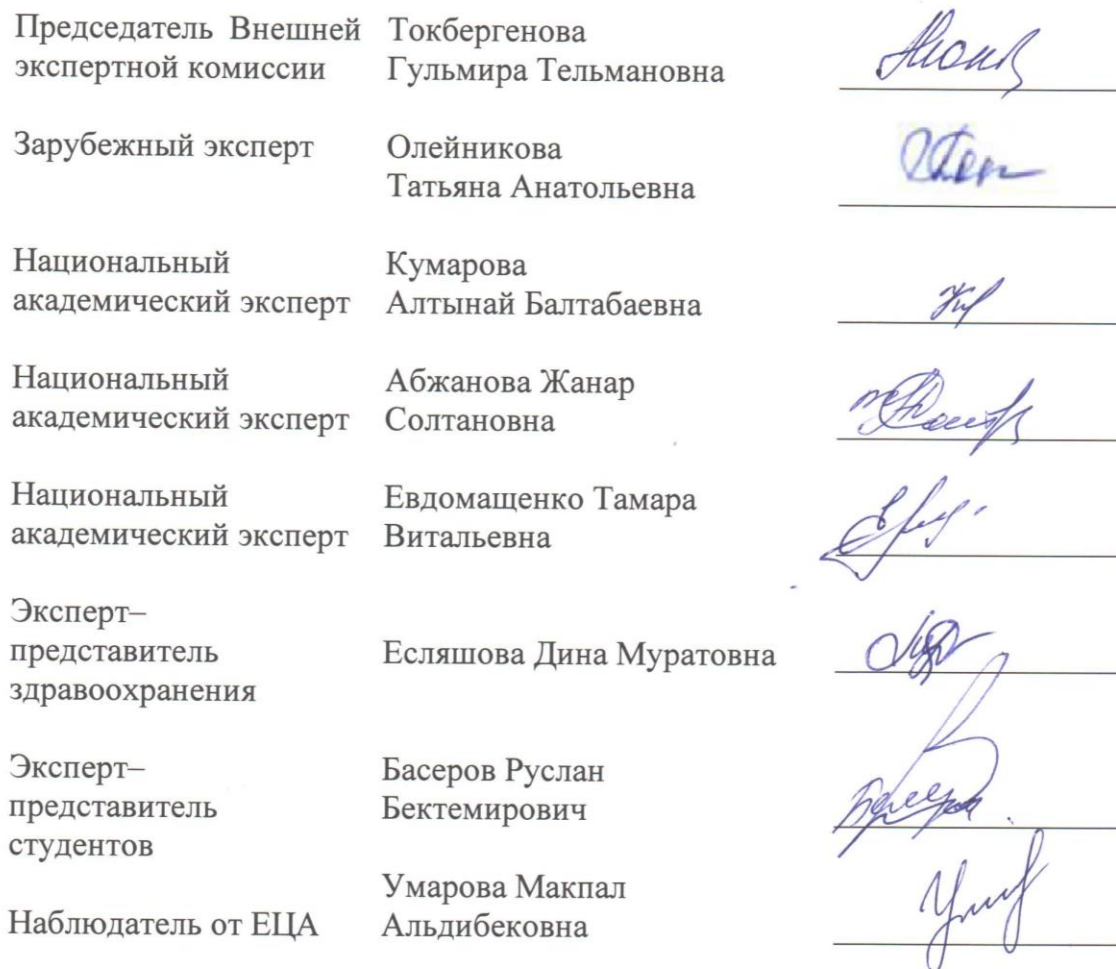 Председатель Внешней экспертной комиссии
Токбергенова Гульмира Тельмановна
Зарубежный эксперт
Олейникова Татьяна Анатольевна
Национальный академический эксперт
Кумарова Алтынай Балтабаевна
Национальный академический эксперт
Абжанова Жанар Солтановна
Национальный академический эксперт
Евдомащенко Тамара Витальевна
Эксперт–представитель здравоохранения
Есляшова Дина Муратовна
Эксперт–представитель студентов
Басеров Руслан Бектемирович
Наблюдатель от ЕЦА
Умарова Макпал Альдибековна